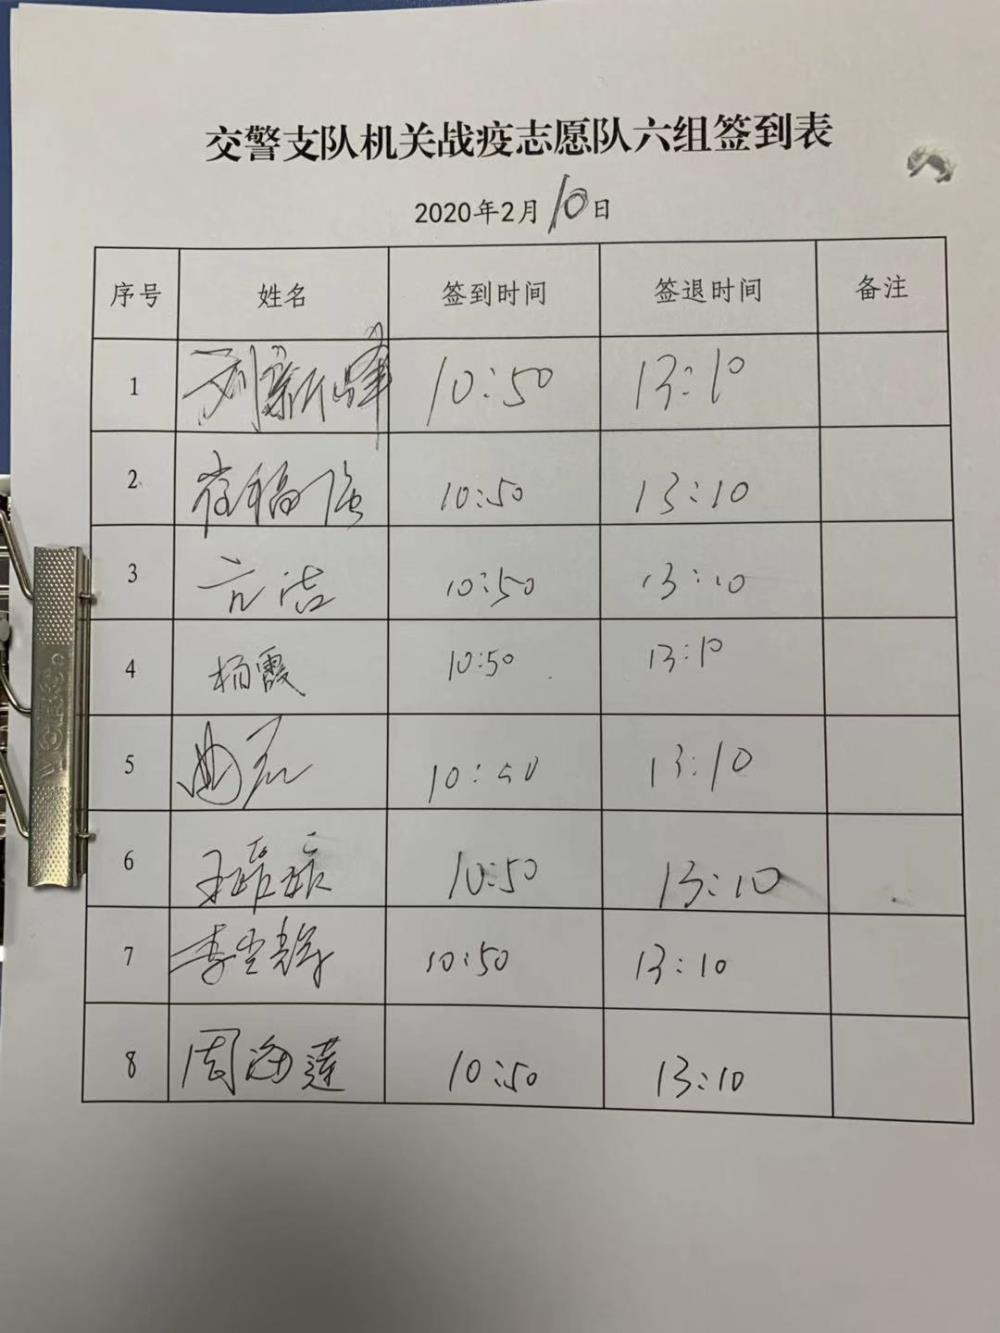 交警支队机关战疫志愿队六组签到表
2020年2月10日
序号 姓名 签到时间 签退时间 备注
1 刘新峰 10:50 13:10
2 崔福强 10:50 13:10
3 亓洁 10:50 13:10
4 杨霞 10:50 13:10
5 曲 10:50 13:10
6 王 10:50 13:10
7 李 辉 10:50 13:10
8 周海莲 10:50 13:10